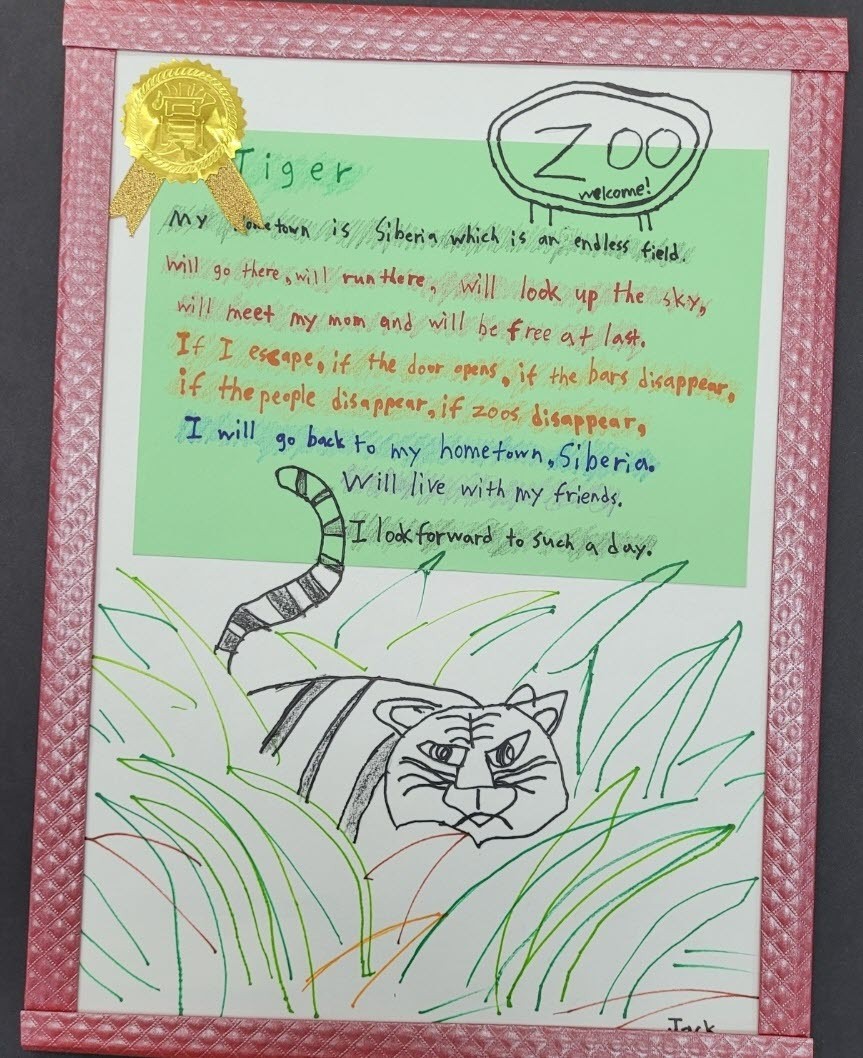 賞
ZOO
welcome!
Tiger
My hometown is Siberia which is an endless field.
Will go there, will run there, will look up the sky,
will meet my mom and will be free at last.
If I escape, if the door opens, if the bars disappear,
if the people disappear, if zoos disappear,
I will go back to my hometown, Siberia.
Will live with my friends.
I look forward to such a day.
Jack